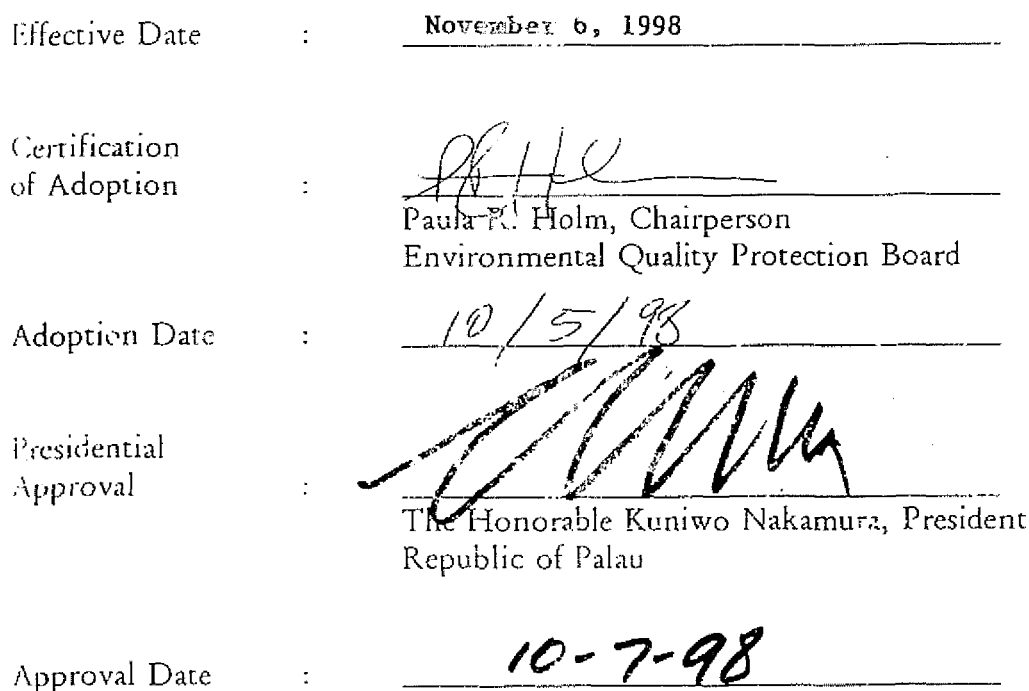 Effective Date : November 6, 1998
Certification
of Adoption :
Paula R. Holm, Chairperson
Environmental Quality Protection Board
Adoption Date : 10/5/98
Presidential
Approval :
The Honorable Kuniwo Nakamura, President
Republic of Palau
Approval Date : 10-7-98